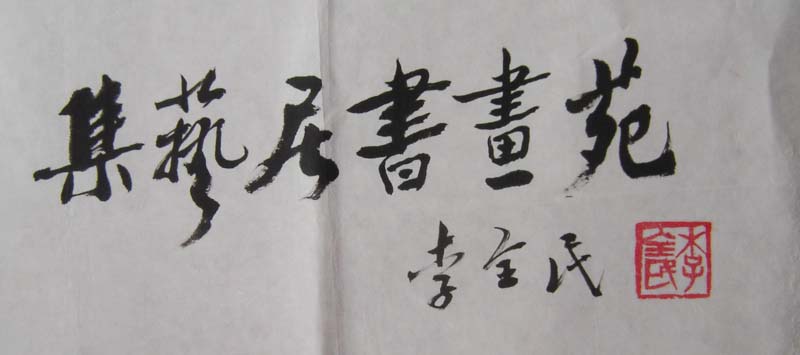 集藝居書畫苑
李全民
李全民